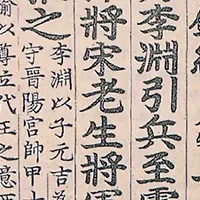 李淵引兵至
將宋老生將
李淵以子元吉
之守晉陽宮帥甲士
諭以尊立代王之意